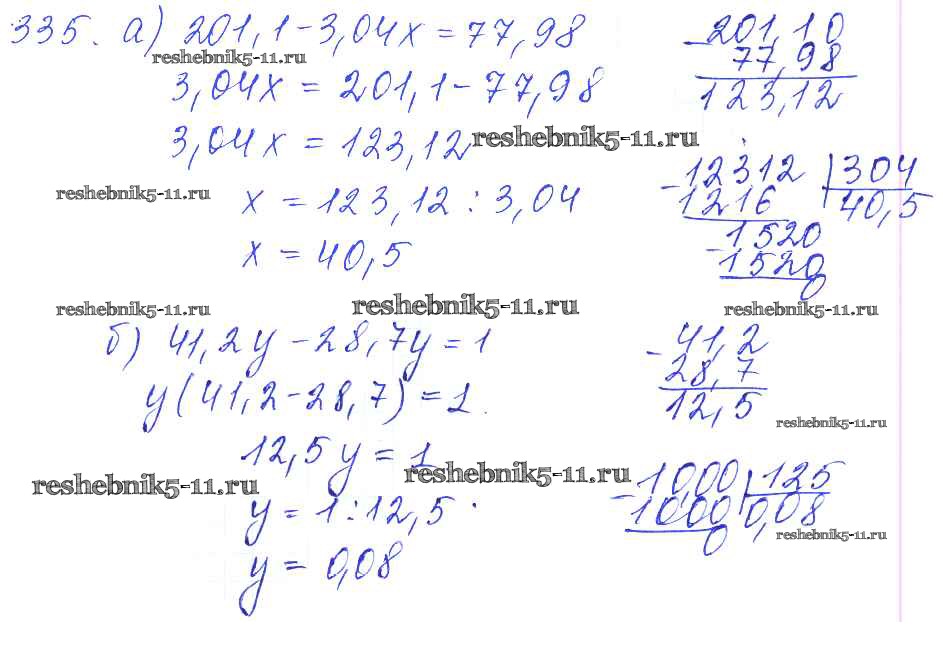 335. а) 201,1 - 3,04x = 77,98
reshebnik5-11.ru
3,04x = 201,1 - 77,98
3,04x = 123,12
reshebnik5-11.ru
reshebnik5-11.ru
x = 123,12 : 3,04
x = 40,5
-201,10
77,98
123,12
-12312 | 304
1216 40,5
-1520
1520
0
reshebnik5-11.ru
reshebnik5-11.ru
reshebnik5-11.ru
б) 41,2y - 28,7y = 1
y(41,2 - 28,7) = 1.
12,5y = 1
reshebnik5-11.ru
reshebnik5-11.ru
y = 1 : 12,5
y = 0,08
-41,2
28,7
12,5
reshebnik5-11.ru
-10,00 | 125
1000 0,08
0
reshebnik5-11.ru